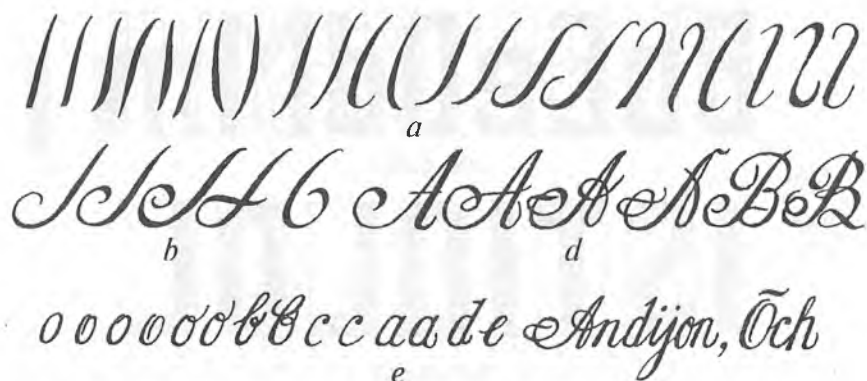 a
A A A N B B
b d
o o o o o o b b c c a a d e Andijon, Õch
e